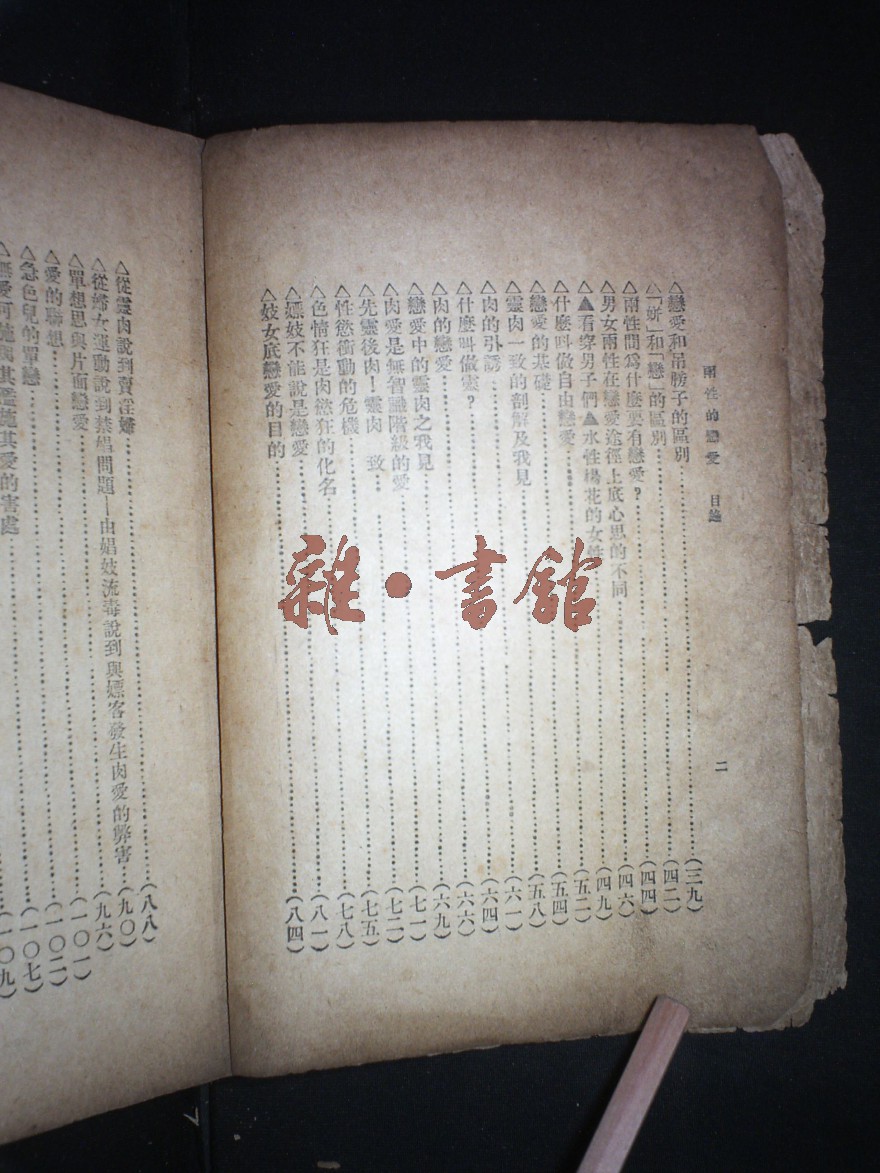 兩性的戀愛 目錄 二
△戀愛和吊膀子的區別……(三九)
△「姘」和「戀」的區別……(四二)
△兩性間爲什麼要有戀愛?……(四四)
△男女兩性在戀愛途徑上底心思的不同……(四六)
△▲看穿男子們▲水性楊花的女性……(四九)
△什麼叫做自由戀愛……(五二)
△戀愛的基礎……(五四)
△靈肉一致的剖解及我見……(五八)
△肉的引誘……(六一)
△什麼叫做靈?……(六四)
△肉的戀愛……(六六)
△戀愛中的靈肉之我見……(六九)
△肉愛是無智識階級的愛……(七一)
△先靈後肉!靈肉 致……(七二)
△性慾衝動的危機……(七五)
△色情狂是肉慾狂的化名……(七八)
△嫖妓不能說是戀愛……(八一)
△妓女底戀愛的目的……(八四)
△從靈肉說到賣淫婦……(八八)
△從婦女運動說到禁娼問題—由娼妓流毒說到與嫖客發生肉愛的弊害……(九〇)
△單想思與片面戀愛……(九六)
△愛的聯想……(一〇一)
△急色兒的單戀……(一〇二)
△無愛可施 其濫施其愛的害處……(一〇七)
(一〇九)
雜·書館